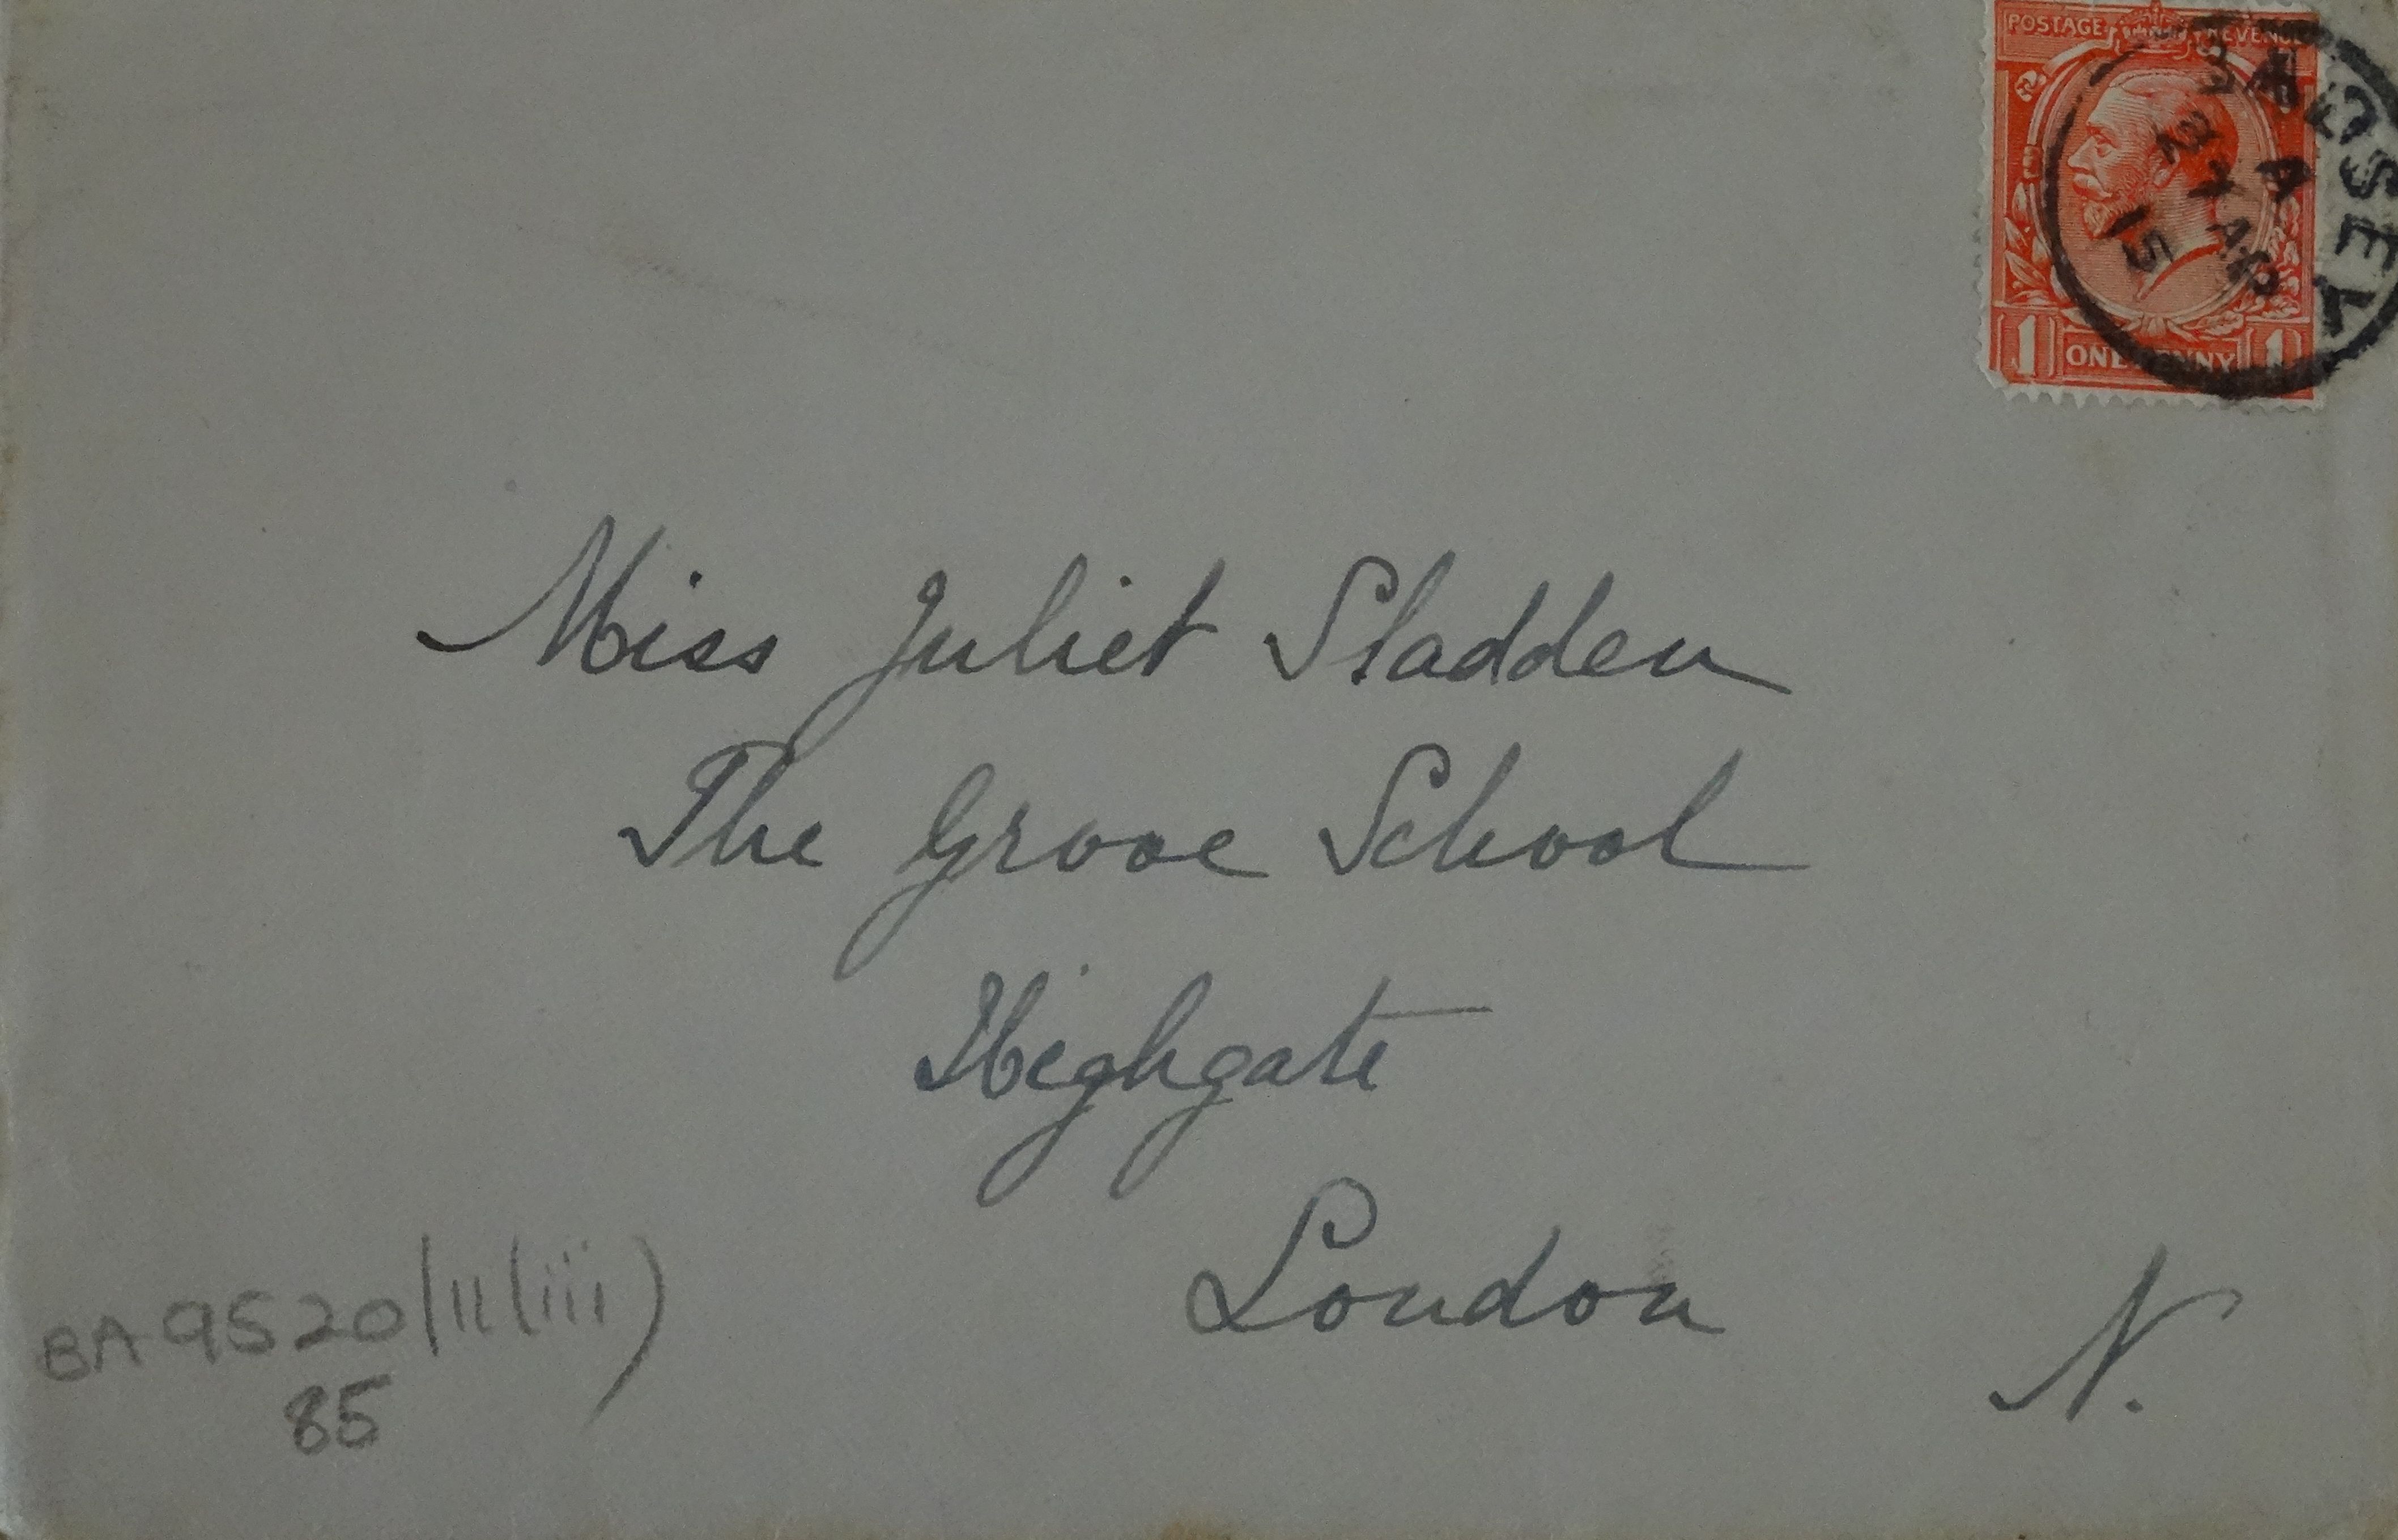 POSTAGE REVENUE
BADSEY
A
27 AP
15
1 ONE PENNY 1
Miss Juliet Sladden
The Grove School
Highgate
London
N.
BA 9520/11(iii)
85